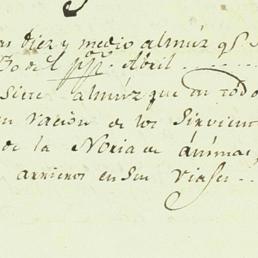 diez y medio almúz qe
30 del ppo Abril
siete almúz que en todo
racion de los sirvient
de la Noria de animas
arrieros en sus viages